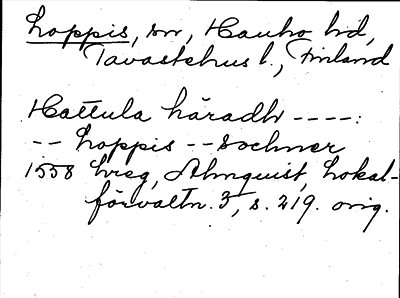 Loppis, sn, Hauho hd,
Tavastehus l., Finland
Hattula häradh ----:
-- Loppis -- Sochner
1558 Almquist, Lokal-
förvaltn. 3, s. 219. orig.